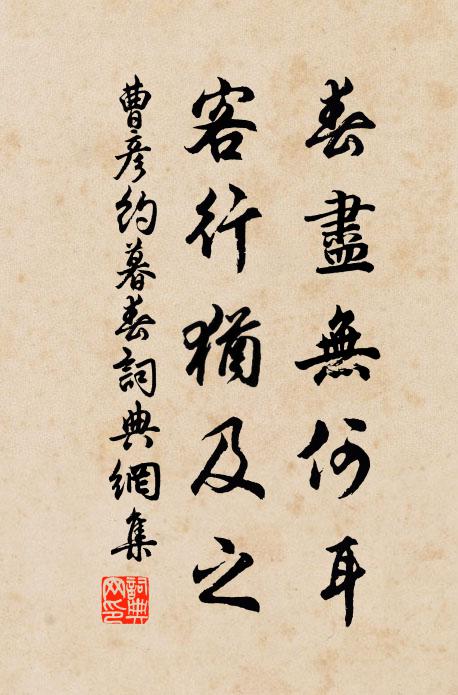 春盡無何耳
客行猶及之
曹彥約暮春詞典網集
詞典
网印